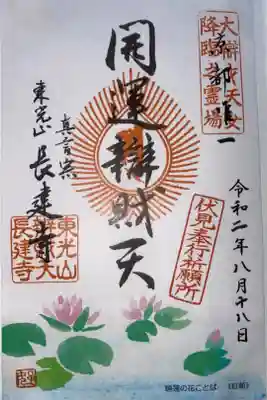 大辯財天女
降臨之霊場
京都唯一
令和二年八月十八日
伏見奉行祈願所
開運辯財天
真言宗
東光山
長建寺
東光山
長建寺
睡蓮の花ことば